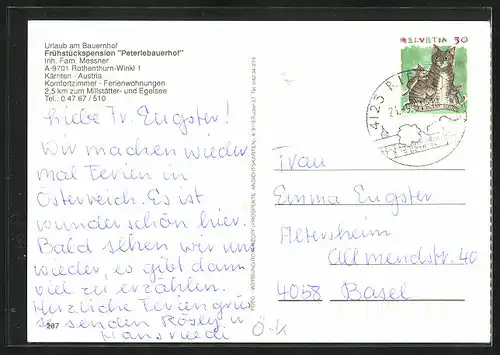 Urlaub am Bauernhof
Frühstückspension "Peterlebauerhof"
Inh. Fam. Messner
A-9701 Rothenthurn-Winkl 1
Kärnten - Austria
Komfortzimmer - Ferienwohnungen
2,5 km zum Millstätter- und Egelsee
Tel.: 0 47 67 / 510
Liebe Fr. Eugster!
Wir machen wieder
mal Ferien in
Österreich. Es ist
wunderschön hier.
Bald sehen wir uns
wieder, es gibt dann
viel zu erzählen.
Herzliche Feriengrüs
se senden Rösly u
Hansruedi
287
Ö-K
HELVETIA 50
4125
Frau
Emma Eugster
Altersheim
Allmendstr. 40
4058 Basel